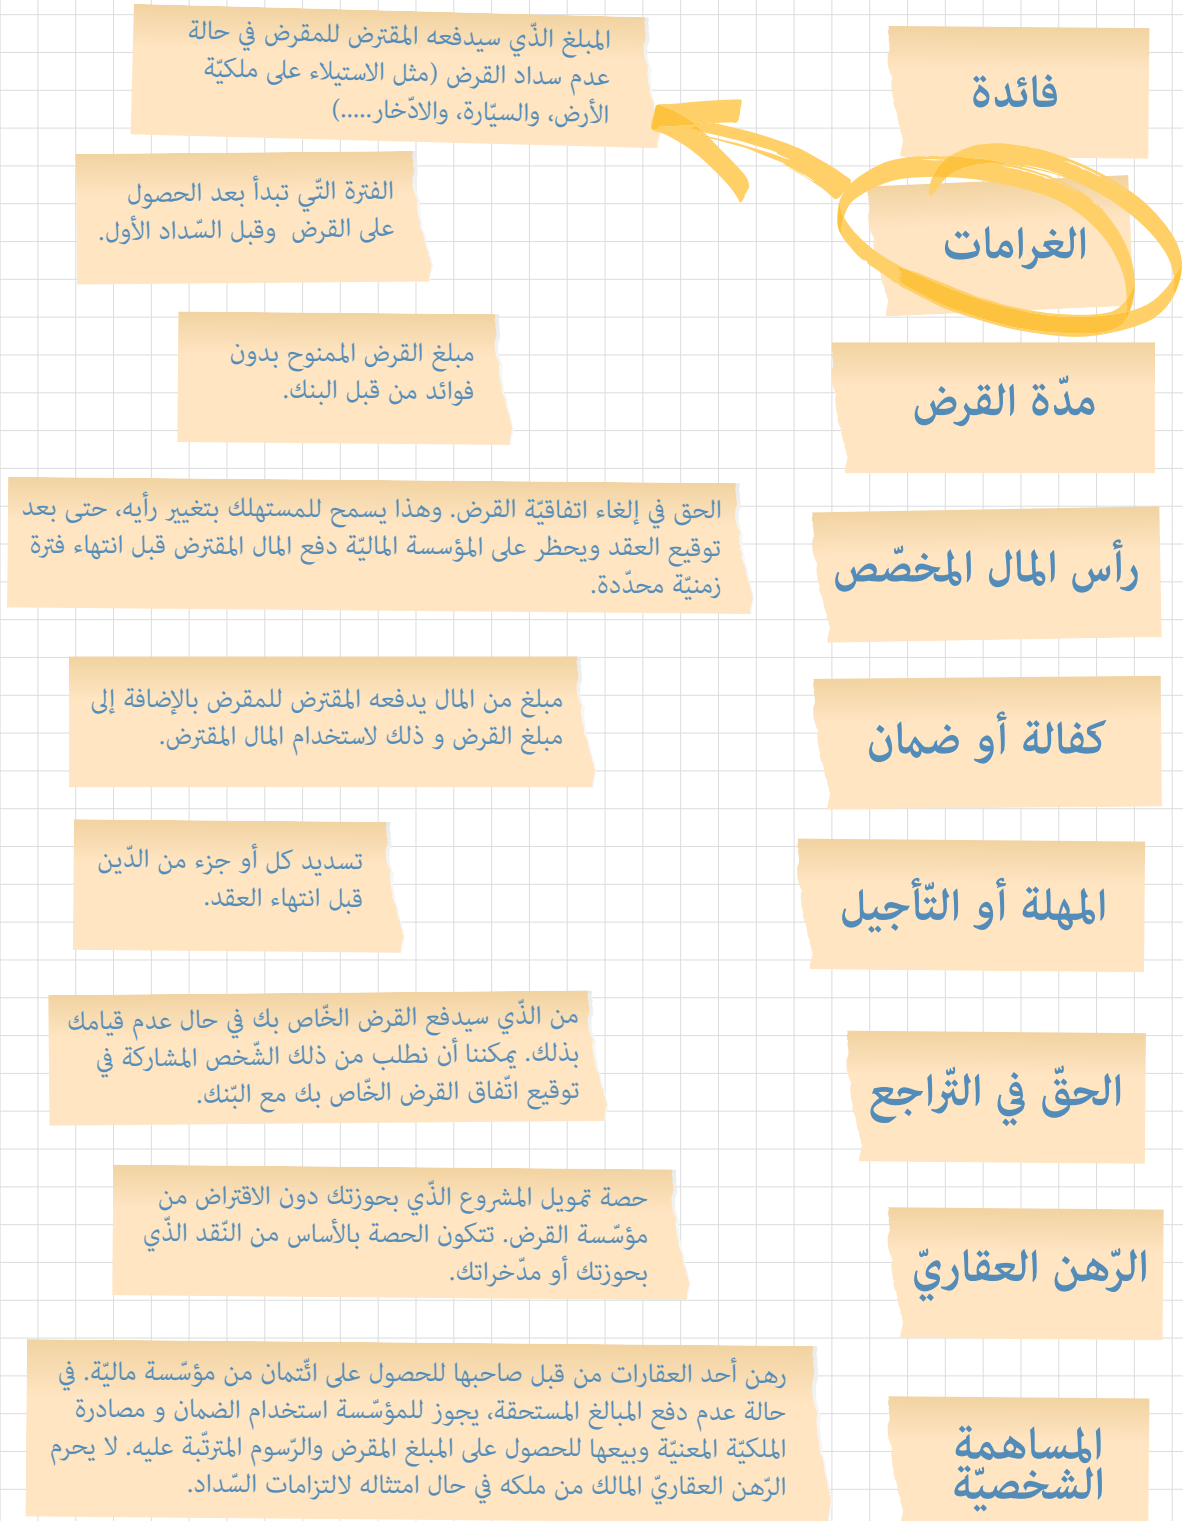 فائدة
الغرامات
مدّة القرض
رأس المال المخصّص
كفالة أو ضمان
المهلة أو التّأجيل
الحقّ في التّراجع
الرّهن العقاريّ
المساهمة
الشخصيّة
المبلغ الذّي سيدفعه المقترض للمقرض في حالة
عدم سداد القرض (مثل الاستيلاء على ملكيّة
الأرض، والسيّارة، والادّخار.....)
الفترة التّي تبدأ بعد الحصول
على القرض وقبل السّداد الأول.
مبلغ القرض الممنوح بدون
فوائد من قبل البنك.
الحق في إلغاء اتفاقيّة القرض. وهذا يسمح للمستهلك بتغيير رأيه، حتى بعد
توقيع العقد ويحظر على المؤسسة الماليّة دفع المال المقترض قبل انتهاء فترة
زمنيّة محدّدة.
مبلغ من المال يدفعه المقترض للمقرض بالإضافة إلى
مبلغ القرض و ذلك لاستخدام المال المقترض.
تسديد كل أو جزء من الدّين
قبل انتهاء العقد.
من الذّي سيدفع القرض الخّاص بك في حال عدم قيامك
بذلك. يمكننا أن نطلب من ذلك الشّخص المشاركة في
توقيع اتّفاق القرض الخّاص بك مع البّنك.
حصة تمويل المشروع الذّي بحوزتك دون الاقتراض من
مؤسّسة القرض. تتكون الحصة بالأساس من النّقد الذّي
بحوزتك أو مدّخراتك.
رهن أحد العقارات من قبل صاحبها للحصول على ائتّمان من مؤسّسة ماليّة. في
حالة عدم دفع المبالغ المستحقة، يجوز للمؤسّسة استخدام الضمان و مصادرة
الملكيّة المعنيّة وبيعها للحصول على المبلغ المقرض والرّسوم المترتّبة عليه. لا يحرم
الرّهن العقاريّ المالك من ملكه في حال امتثاله لالتزامات السّداد.